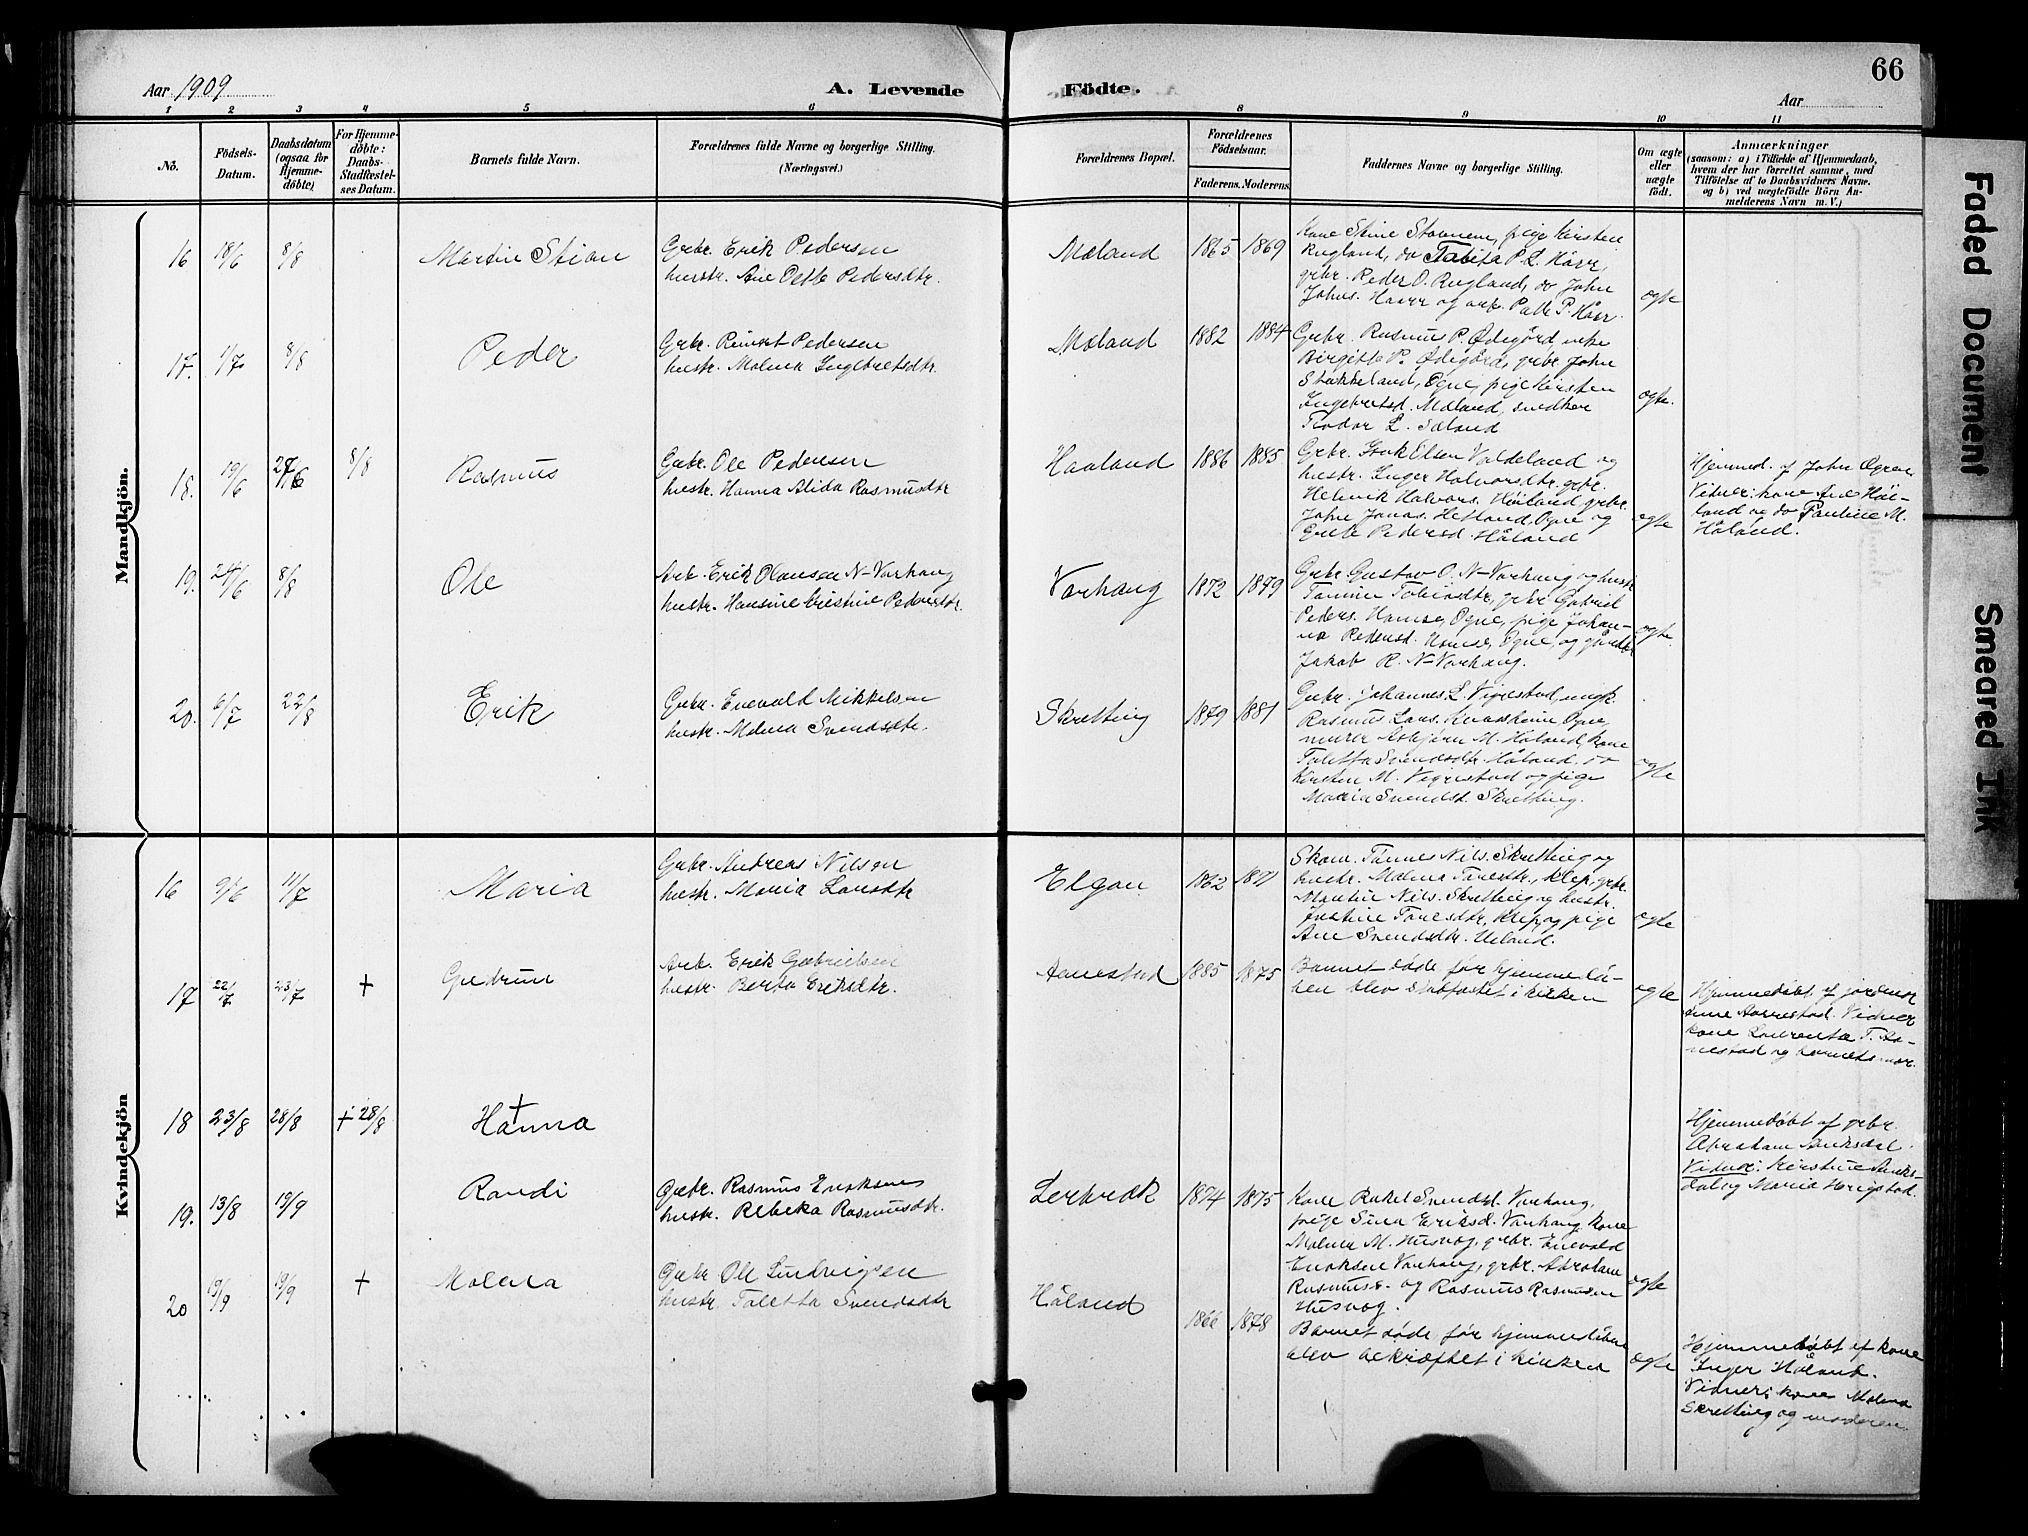 Aar 1909
A. Levende
Födte.
Aar
66
1 2 3 4 5 6 8 9 10 11
Nô.
Födsels-
Datum.
Daabsdatum
(ogsaa for
Hjemme-
døbte)
For Hjemme-
døbte:
Daabs-
Stadfæstel-
ses Datum.
Barnets fulde Navn.
Forældrenes fulde Navne og borgerlige Stilling.
(Næringsvei.)
Forældrenes Bopæl.
Forældrenes
Födselsaar.
Faderens. Moderens.
Faddernes Navne og borgerlige Stilling.
Om ægte
eller
uægte
födt.
Anmærkninger
(saasom: a) i Tilfælde af Hjemmedaab,
hvem der har forrettet samme, med
Tilföielse af to Daabsvidners Navne.
og b) ved uægtefödte Börn An-
melderens Navn m. V.)
Mandkjön.
16 18/6 8/8 Martin Stian
Grbr. Erik Pedersen
hustr. Ane Pedersdtr.
Mæland 1865 1869
Kone Stine pige Kirsten
Rugland, do Tabita P. L. Håvr,
grbr. Peder O. Rugland, do John
Johns. Havrr og Palle P. Håvr.
ægte
17. 1/7 8/8 Peder
Grbr. Reinert Pedersen
hustr. Malena Ingebretsdtr.
Mæland 1882 1884
Grbr. Rasmus P. Ødegård enke
Birgitte P. Ødegård, grbr. John
Stokkeland, Ogne, pige Kirsten
Ingebretsd. Mæland, snedker
Teodor L. Sæland
ægte.
18. 19/6 27/6 8/8 Rasmus
Grbr. Ole Pedersen
hustr. Hanna Alida Rasmusdtr
Haaland 1886 1885
Grbr. Valdeland og
hustr. Inger Halvorsdtr. grbr.
Henrik Halvors. Höiland grbr.
John Jonas. Hetland, Ogne og
Grete Pedersd. Håland
ægte
Hjemmed. af John Ogne
Vidner: kone Ane Höi-
land og do Pauline M.
Håland.
19. 24/6 8/8 Ole
Arb. Erik Olausen N-Varhaug
hustr. Hansine Cristine Pedersdtr.
Varhaug 1872 1879
Grbr Gustav O. N-Varhaug og hustr
Tomine Tobiasdtr, grbr Gabriel
Peders. Homse, Ogne, pige Johan-
na Pedersd. Homse, Ogne, og
Jakob R. N-Varhaug.
ægte.
20. 6/7 22/8 Erik
Grbr. Enevald Mikkelsen
hustr. Malena Svendsdtr.
Skretting 1879 1881
Grbr. Johannes L. Vigrestad, ungk.
Rasmus Lars. Kvassheim Ogne,
murer Asbjørn M. Håland, kone
Taletta Svendsdtr. Håland. do
Kirsten M. Vigrestad og pige
Maria Svendst. Skretting.
ægte
Kvindekjön
16 9/6 11/7 Maria
Grbr. Andreas Nilsen
hustr. Maria Larsdtr
Elgan 1862 1871
Skom. Tönnes Nils. Skretting og
hustr. Malena Toresdtr., Klep, grbr.
Martin Nils. Skretting og hustr.
Justine Toresdtr, Klep, og pige
Ane Svendsdtr. Ueland.
ægte
17 22/7 23/7 + Gudrun
Arb. Erik Gabrielsen
hustr. Berta Eriksdtr.
Aarrestad 1885 1875
Barnet döde før hjemmedå-
ben blev stadfæstet i kirken
ægte
Hjemmedöbt af jordmor
Anne Aarrestad. Vidner
kone Laurentse T. Aa-
rrestad og barnets mor.
18 23/8 28/8 + 28/8 Hanna
+
Hjemmedöbt af grbr.
Abraham
Vidner: Kirstine
dal og Maria
19. 13/8 19/9 Randi
Grbr. Rasmus Enoksen
hustr. Rebeka Rasmusdtr.
Lerbrekk 1874 1875
Kone Rakel Svendsd. Varhaug,
pige Sina Eriksd. Varhaug, kone
Malena M. Husvog, grbr. Enevald
Enoksen Varhaug, grbr. Abraham
Rasmuss- og Rasmus Rasmussen
Husvog.
ægte
20 19/9 19/9 + Malena
Grbr Ole Ludvigsen
hustr. Taletta Svendsdtr
Håland 1866 1878
Barnet döde før hjemmedåben
blev bekræftet i kirken
ægte
Hjemmedöbt af kone
Inger Håland.
Vidner: kone Malena
Skretting og moderen
Faded Document
Smeared Ink